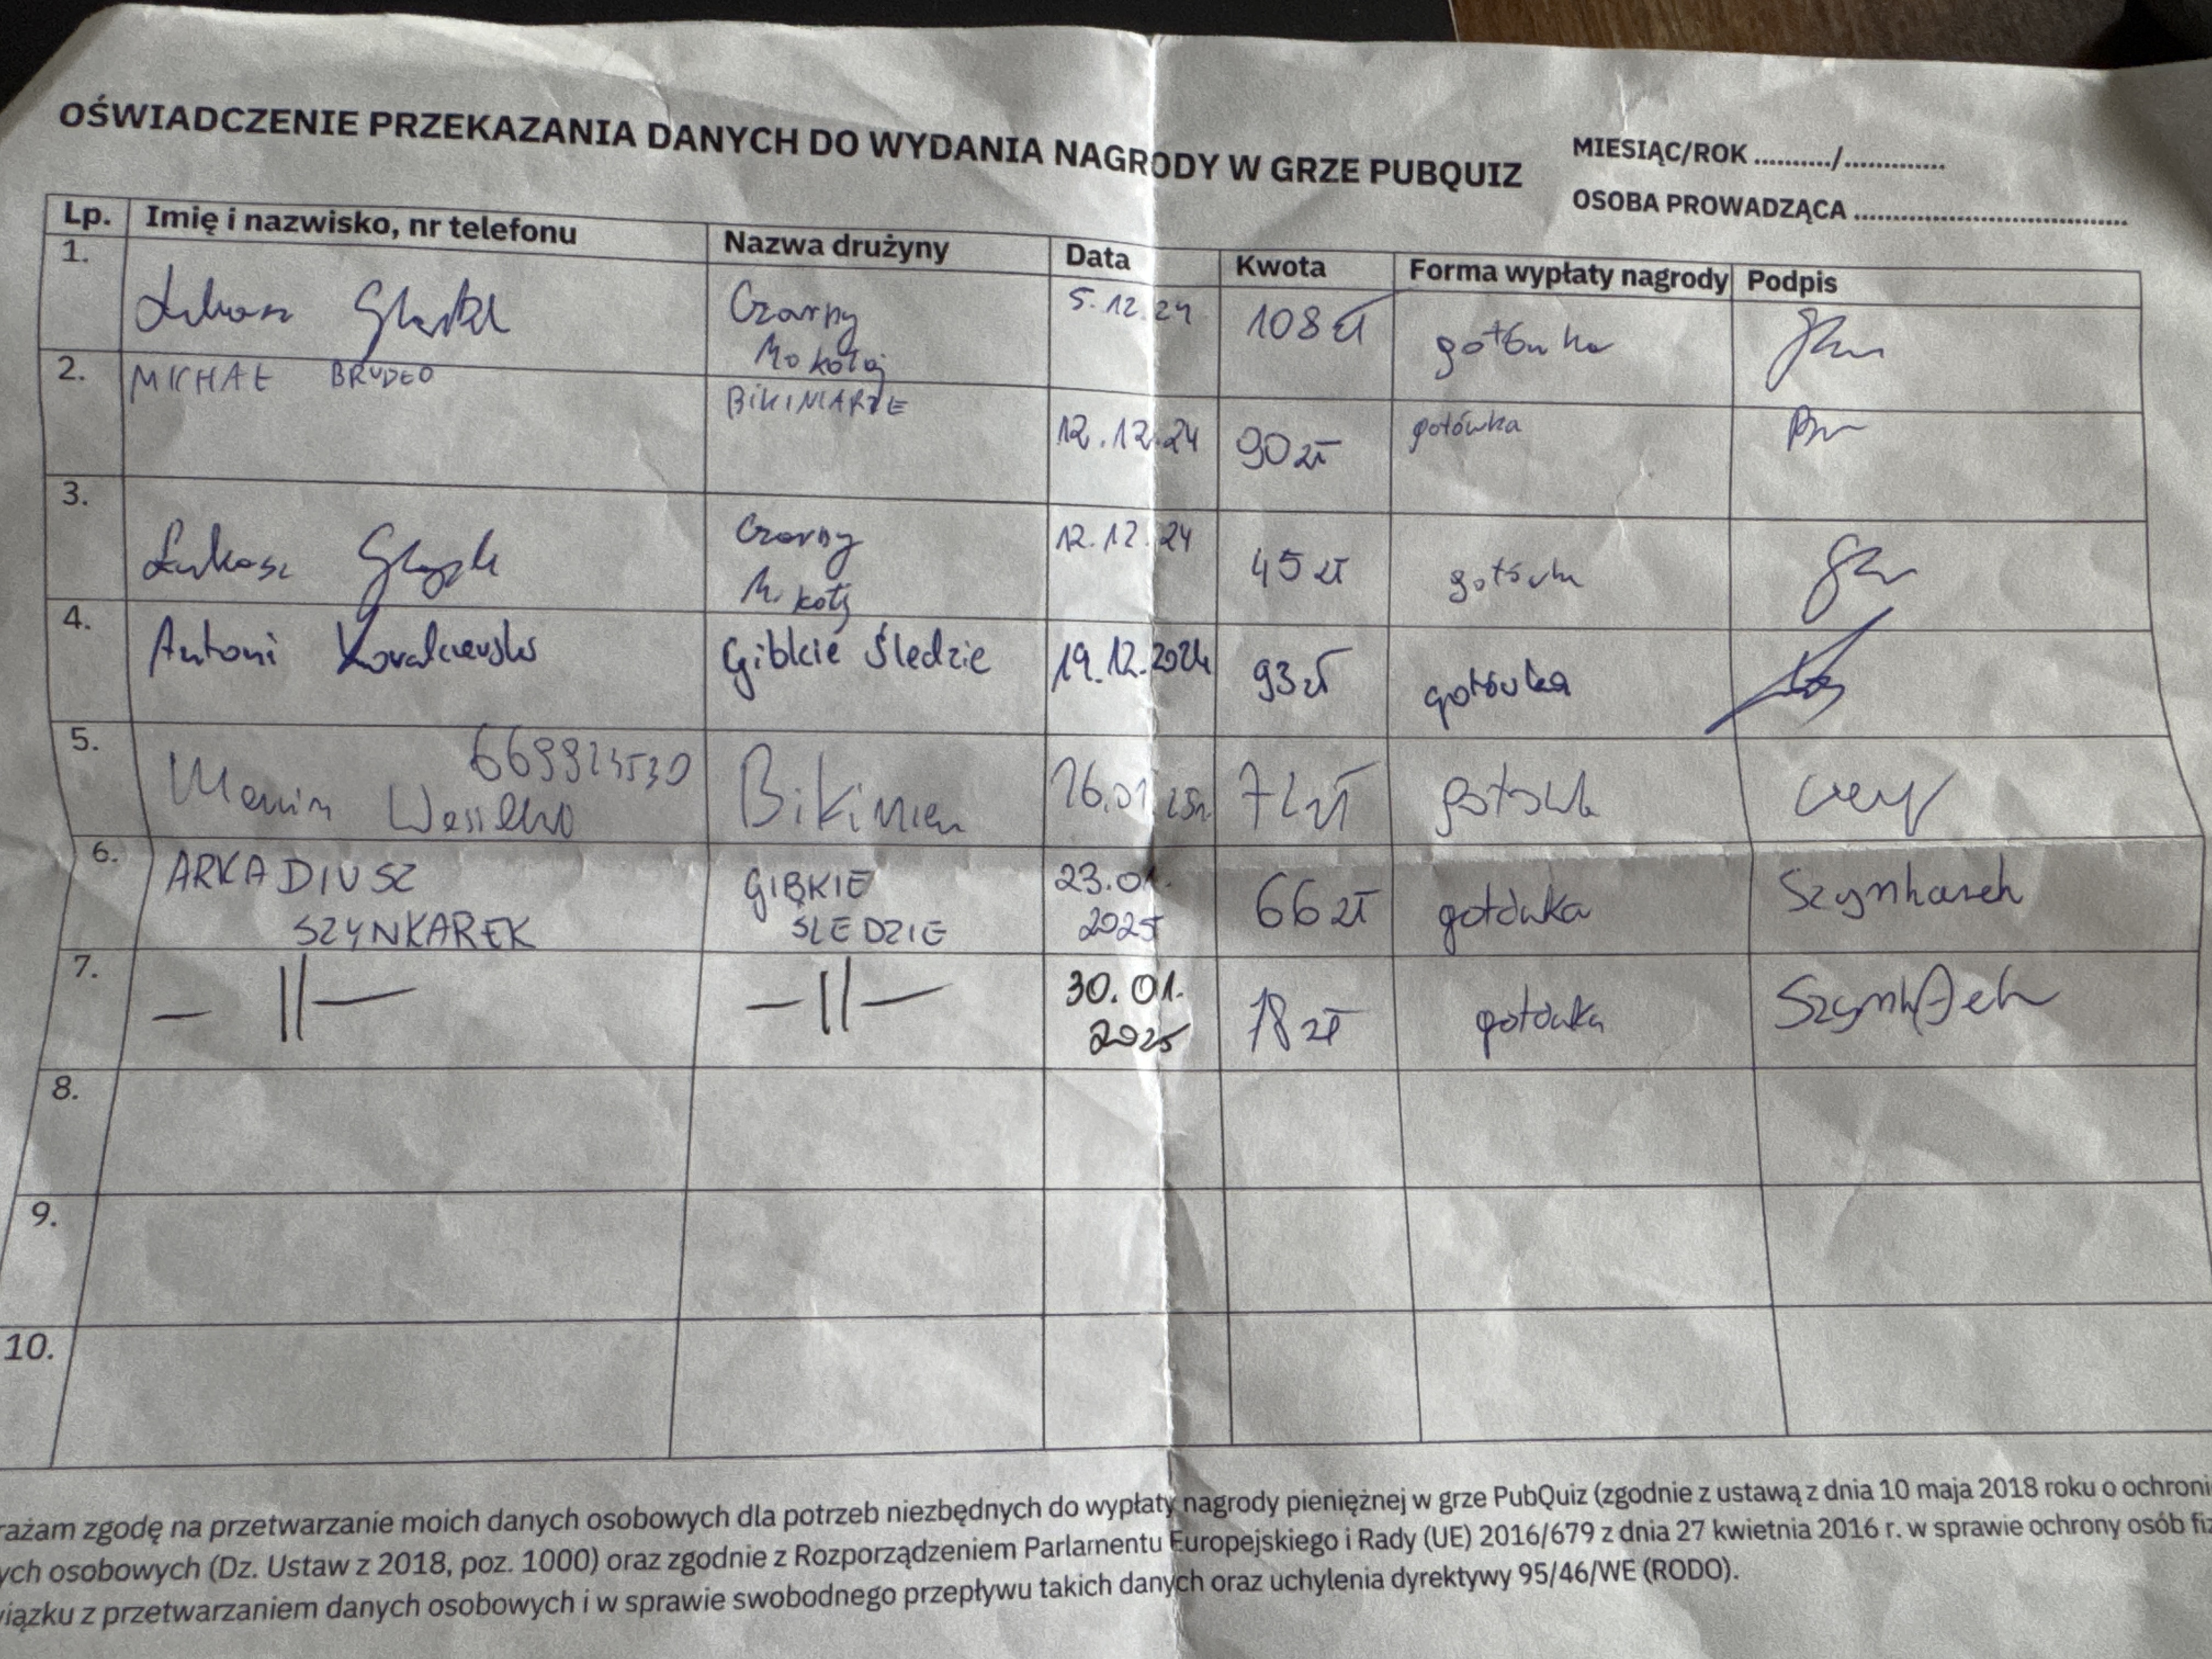 OŚWIADCZENIE PRZEKAZANIA DANYCH DO WYDANIA NAGRODY W GRZE PUBQUIZ
MIESIĄC/ROK ........../.............
OSOBA PROWADZĄCA ...................................
Lp. Imię i nazwisko, nr telefonu Nazwa drużyny Data Kwota Forma wypłaty nagrody Podpis
1. Łukasz Czarny Mokołaj 5.12.24 108 zł gotówka
2. MICHAŁ BRUDŁO BIKINIARZE 12.12.24 90 zł gotówka
3. Łukasz Czarny 12.12.24 45 zł gotówka
4. Antoni Kowalczewski Gibkie Śledzie 19.12.2024 93 zł gotówka
5. Marcin 16.01.25r. zł
6. ARKADIUSZ SZYNKAREK GIBKIE ŚLEDZIE 23.01.2025 66 zł gotówka Szynkarek
7. — || — — || — 30.01.2025 78 zł gotówka
8.
9.
10.
rażam zgodę na przetwarzanie moich danych osobowych dla potrzeb niezbędnych do wypłaty nagrody pieniężnej w grze PubQuiz (zgodnie z ustawą z dnia 10 maja 2018 roku o ochroni
ych osobowych (Dz. Ustaw z 2018, poz. 1000) oraz zgodnie z Rozporządzeniem Parlamentu Europejskiego i Rady (UE) 2016/679 z dnia 27 kwietnia 2016 r. w sprawie ochrony osób fiz
iązku z przetwarzaniem danych osobowych i w sprawie swobodnego przepływu takich danych oraz uchylenia dyrektywy 95/46/WE (RODO).